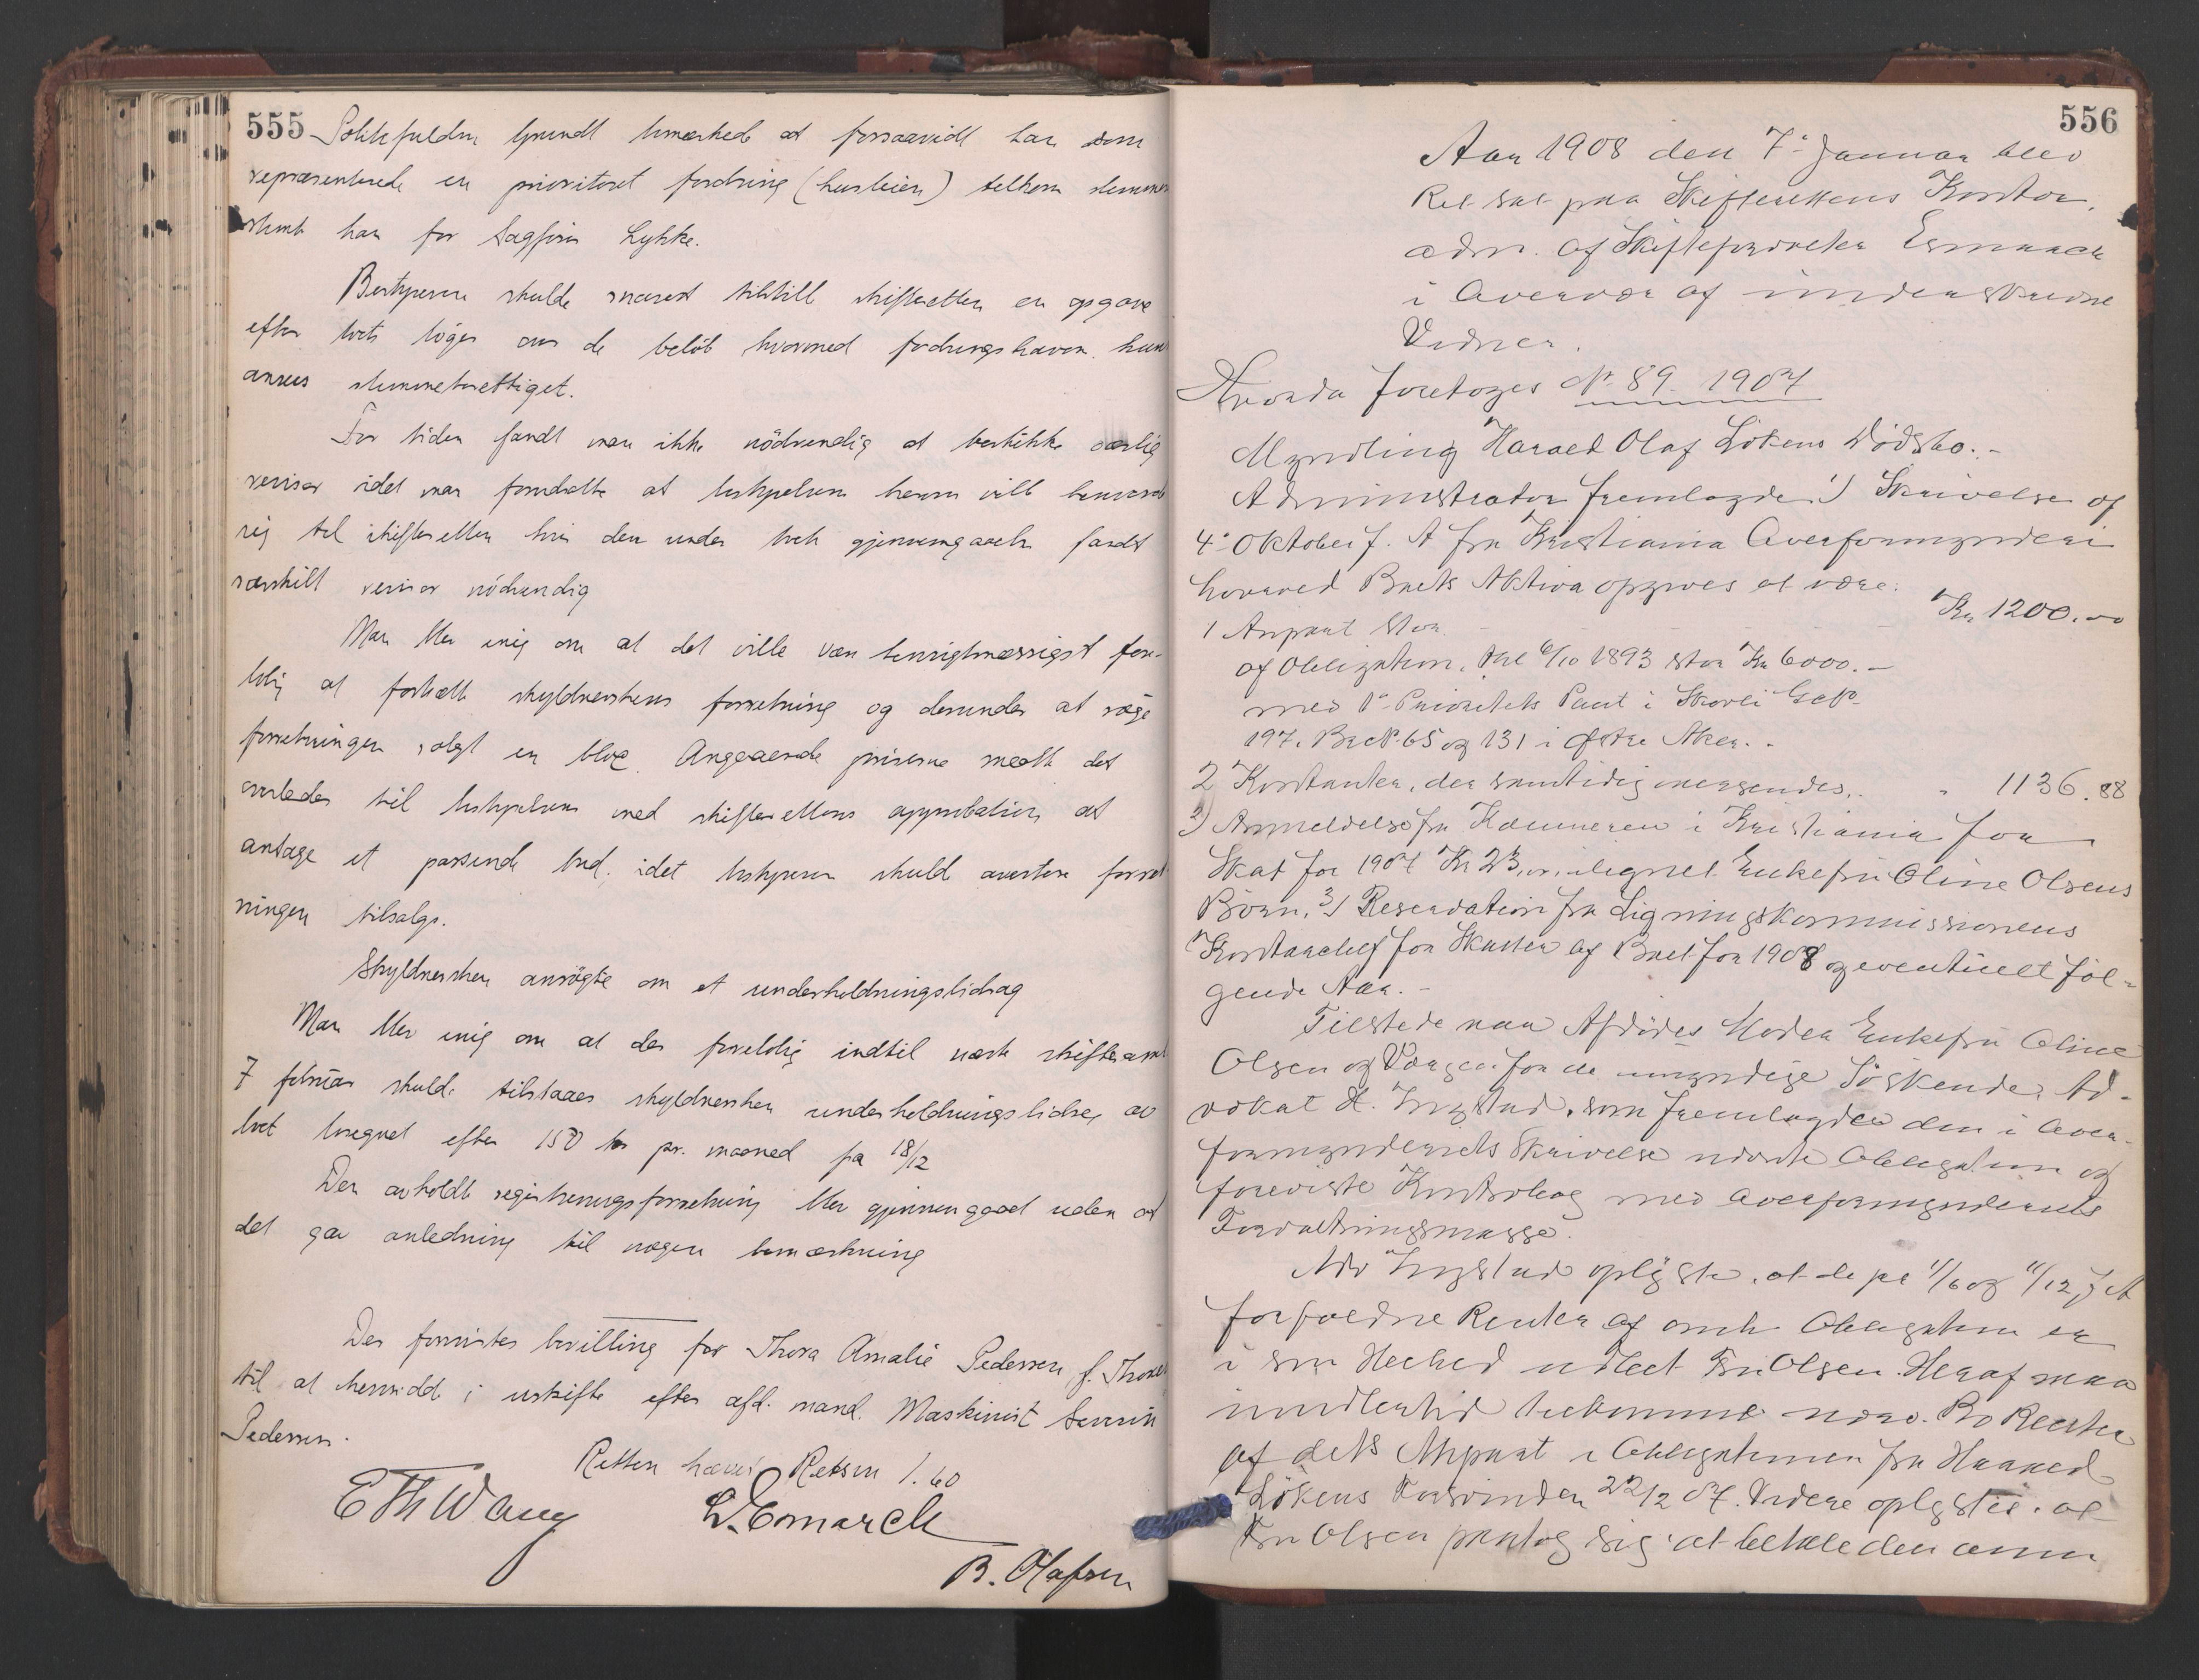 555 Politifuldm Grundt bemerkede at forsaavidt han som
repræsenterede en prioriteret fordring (husleien) tilkom stemme
stemt han for Sagfører Lykke.
Bestyreren skulde snarest tilstille skifteretten en opgave
efter boets bøger over de beløb hvormed fordringshaverne kun
ansees stemmeberettiget.
For tiden fandt man ikke nödvendig at beskikke særlig
revisor idet man forudsatte at bestyrelsen herom vilde henvende
sig til skifteretten hvis den under boets gjennemgaaelse fandt
særskilt revisor nödvendig
Man blev enig om at det ville være hensigtmæssigst fore-
löbig at fortsætte skyldnerskens forretning og derunder at søge
forretningen solgt en bloc. Angaaende priserne maatte det
overlades til bestyrelsen med skifterettens approbation at
antage et passende bud, idet bestyreren skulde avertere forret
ningen tilsalgs.
Skyldnersken ansögte om et underholdningsbidrag
Man blev enig om at der foreløbig indtil næste skiftesaml
7 februar skulde tilstaaes skyldnersken underholdningsbidrag av
boet beregnet efter 150 kr pr. maaned fra 18/12
Den avholdte registreringsforretning blev gjennemgaaet uden at
det gav anledning til nogen bemærkning
Der forevistes bevilling for Thora Amalie Pedersen f. Thore
til at hensidde i uskifte efter afd. mand. Maskinist Severin
Pedersen.
Retten hævet Retsm 1.60
E Th Wang L. Esmarch
B. Olafsen
556
Aar 1908 den 7. Januar blev
Ret sat paa Skifterettens Kontor,
adm. af Skifteforvalter Esmarch
i Overvær af underskrevne
Vidner.
Hvorda foretoges No 89 1907
Myndling Harald Olaf Lökens Dødsbo.-
Administrator fremlagde 1) Skrivelse af
4. Oktober f. A fra Kristiania Overformynderi
hvorved Boets Aktiva opgives at være:
1 Anpart stor Kr 1200.00
af Obligation, thl 6/10 1893 stor Kr 6000.-
med 1. Prioritets Pant i Skovli G No
197. Br No 65 og 131 i Østre Aker.
2 Kontanter, der samtidig oversendes, " 1136.88
2) Anmeldelse fra Kæmneren i Kristiania for
Skat for 1907 Kr 23, ilignet Enkefru Oline Olsens
Børn, 3) Reservation fra Ligningskommissionens
Kontorchef for Skatter af Boet for 1908 og eventuelt föl-
gende Aar.-
Tilstede var Afdödes Moder Enkefru Oline
Olsen og Værgen for de umyndige Söskende, Ad-
vokat H. Ingstad, som fremlagde den i Over-
formynderiets Skrivelse nævnte Obligation og
foreviste Kontrabog med Overformynderiets
Forvaltningsmasse.
Adv Ingstad oplyste, at de pr 11/6 og 11/12 f A
forfaldne Renter af omh. Obligation er
i sin Helhed udbet. Fru Olsen. Heraf maa
imidlertid tilkomme nærv. Bo Renter
af dets Anpart i Obligationen fra Harald
Lökens Forsvinden 22/2 07. Videre oplystes, at
Fru Olsen paatog sig at betale den anm